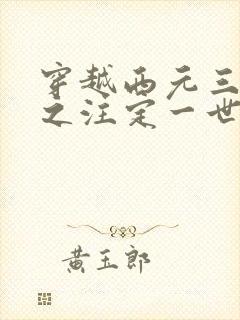 穿越西元三
之注定一世
黄玉郎